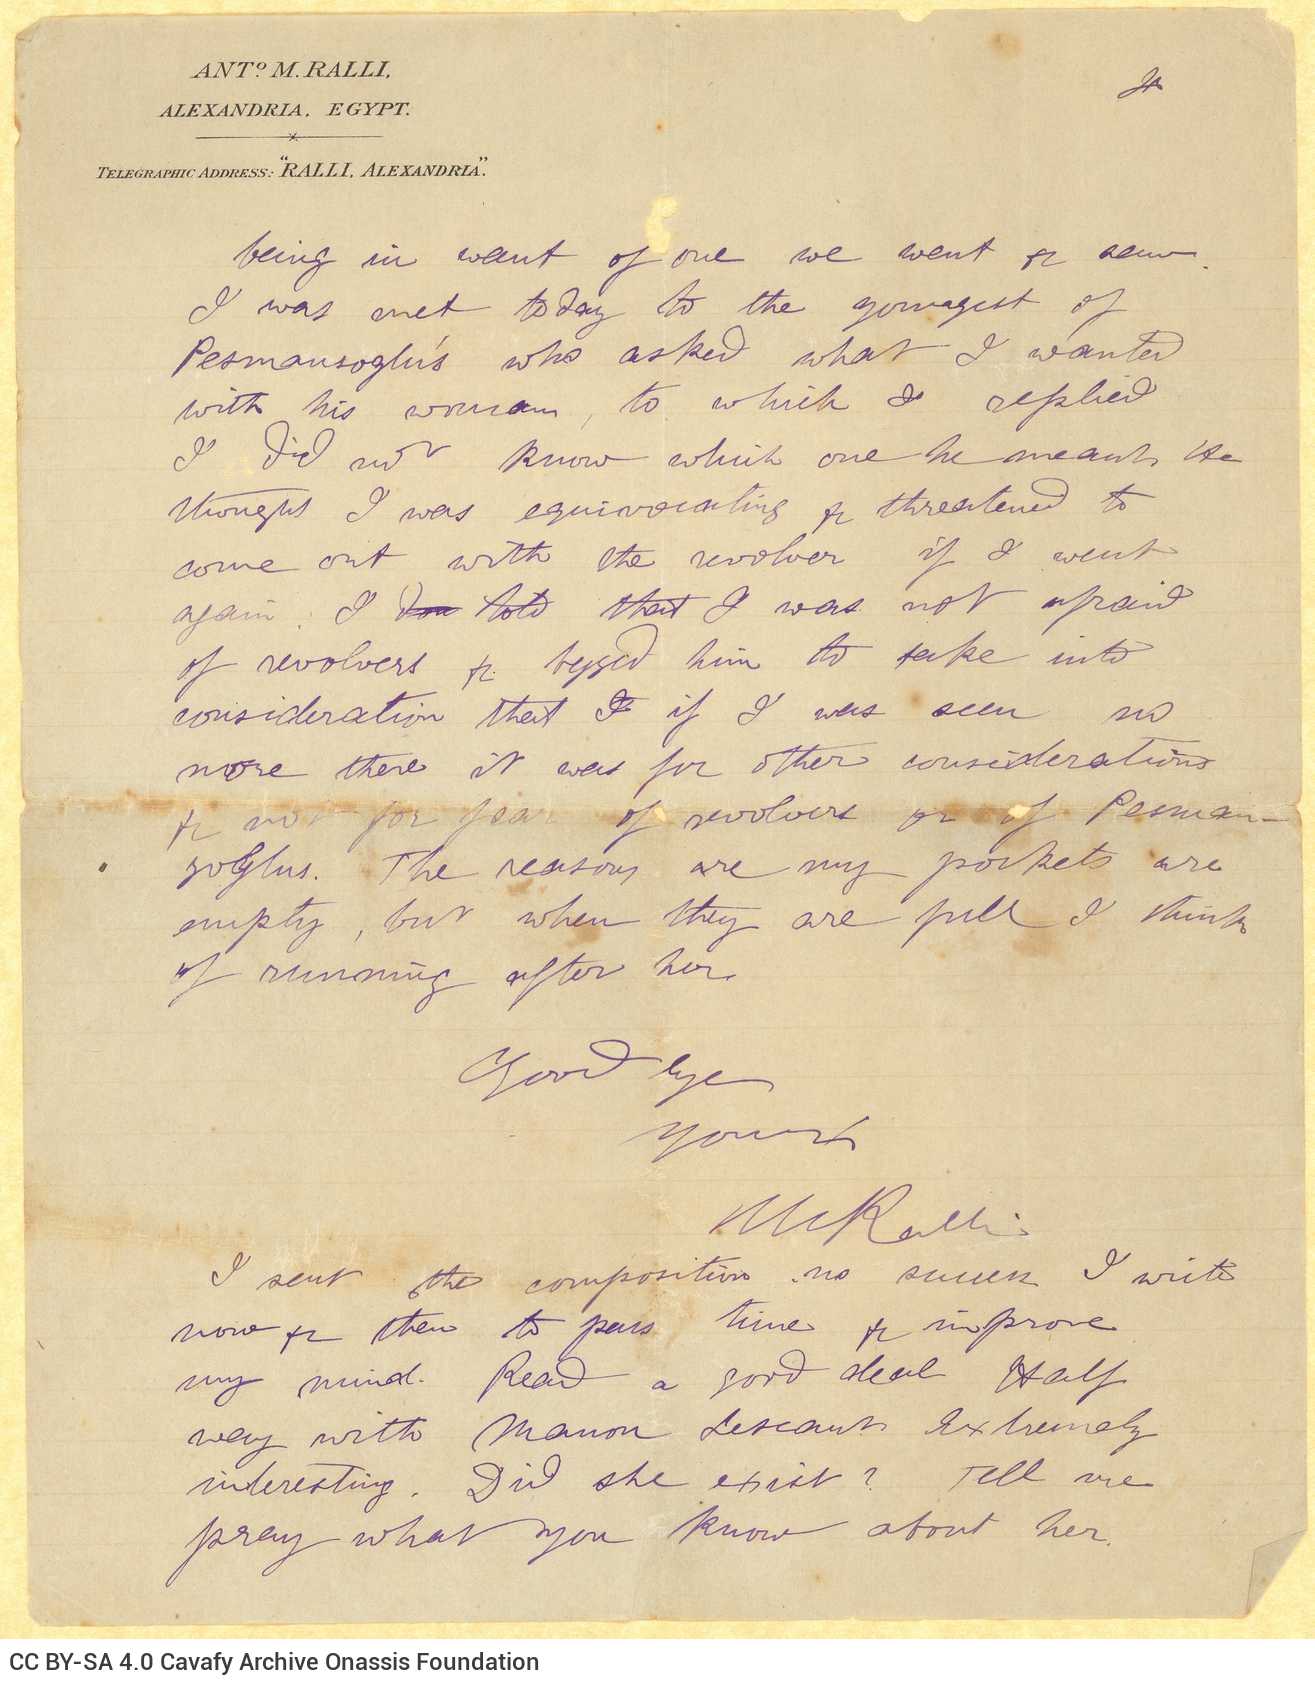 ANTº M. RALLI,
ALEXANDRIA, EGYPT.
TELEGRAPHIC ADDRESS: "RALLI, ALEXANDRIA".
being in want of one we went & saw.
I was met today to the youngest of
Pesmansoglu's who asked what I wanted
with his woman, to which I replied
I did not know which one he meant. He
thought I was equivocating & threatened to
come out with the revolver if I went
again. I told that I was not afraid
of revolvers & begged him to take into
consideration that I if I was seen no
more there it was for other considerations
& not for fear of revolvers or of Pesman-
zoglus. The reasons are my pockets are
empty, but when they are full I think
of running after her.
Good bye
Yours
Ralli
I sent the composition no success I write
now & then to pass time & improve
my mind. Read a good deal Half
way with Manon Lescaut. Extremely
interesting. Did she exist? Tell me
pray what you know about her.
CC BY-SA 4.0 Cavafy Archive Onassis Foundation